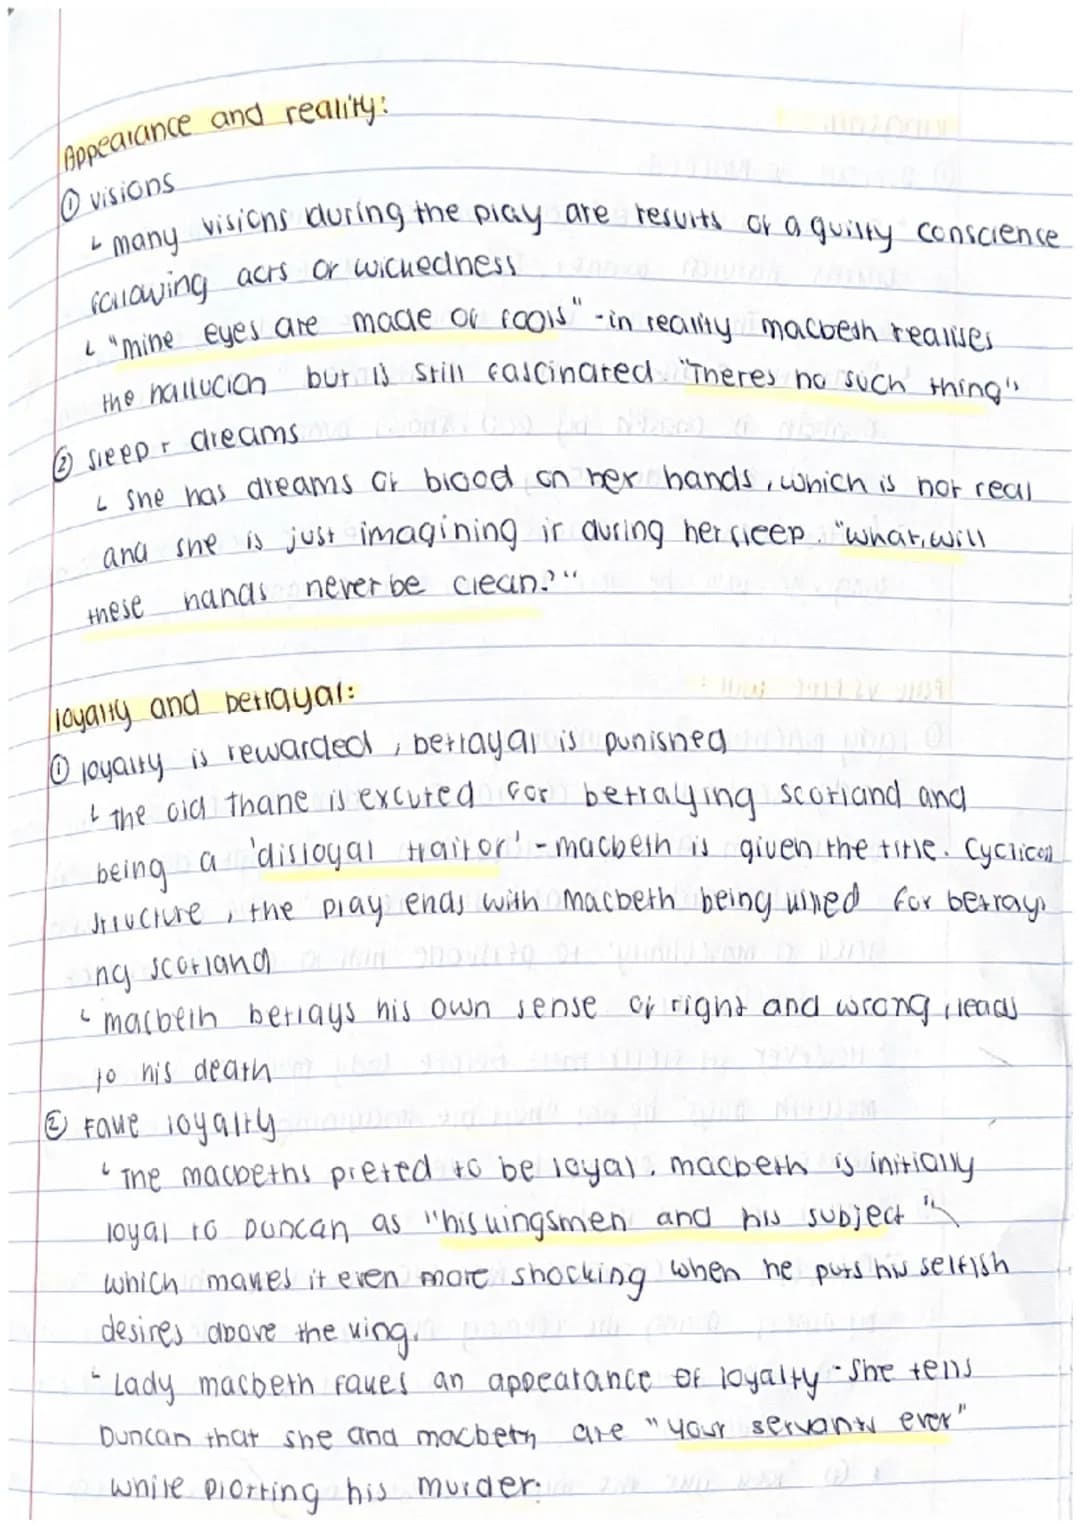 Appearance and reality:
① visions
↳ many visions during the play are results of a guilty conscience
following acts of wickedness
↳ "mine eyes are made of fools" - in reality macbeth realises
the hallucion but is still fascinated. "Theres no such thing"
② sleep + dreams
↳ she has dreams of blood on her hands, which is not real
and she is just imagining it during her sleep. "what, will
these hands never be clean?"
loyalty and betrayal:
① loyalty is rewarded, betrayal is punished
↳ the old thane is excuted for betraying scotland and
being a 'disloyal traitor' - macbeth is given the title. Cyclical
structure, the play ends with Macbeth being killed for betrayi
ng scotland
↳ macbeth betrays his own sense of right and wrong, leads
to his death
② Fake loyalty
↳ The macbeths preted to be loyal. macbeth is initially
loyal to Duncan as "his kingsmen and his subject"
which makes it even more shocking when he puts his selfish
desires above the king.
↳ Lady macbeth fakes an appearance of loyalty - She tells
Duncan that she and macbeth are "your servants ever"
while plotting his murder.